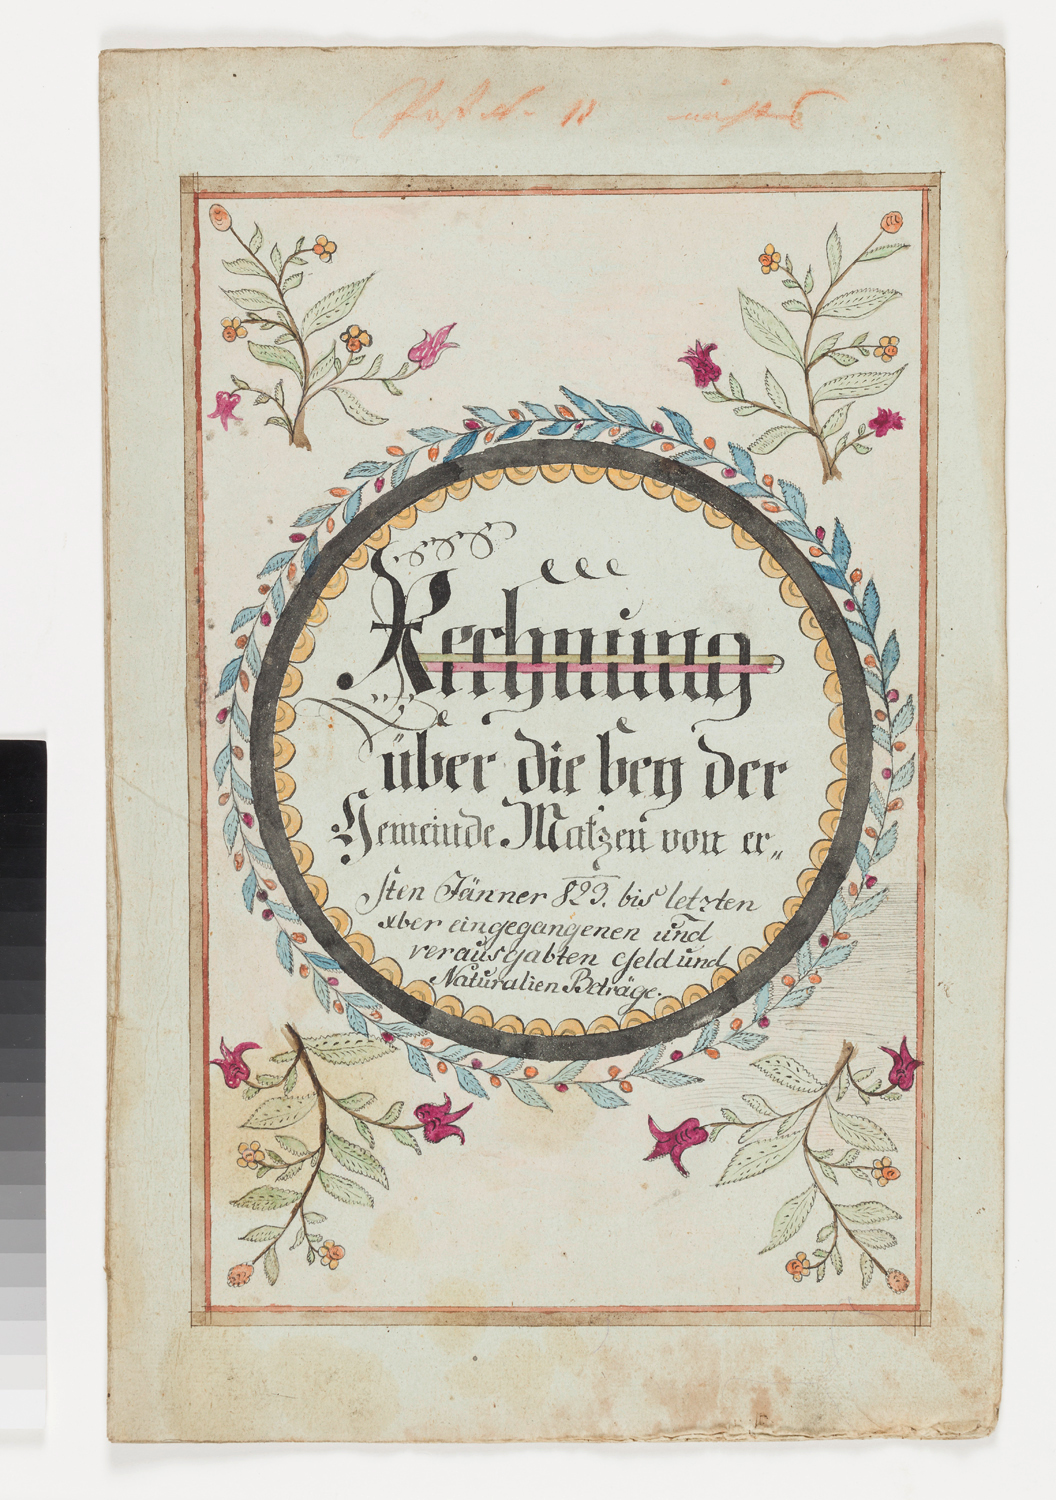 Rechnung
über die bey der
Gemeinde Matzen von er„
sten Jänner 823. bis letzten
xber eingegangenen und
verausgabten Geld und
Naturalien Beträge.